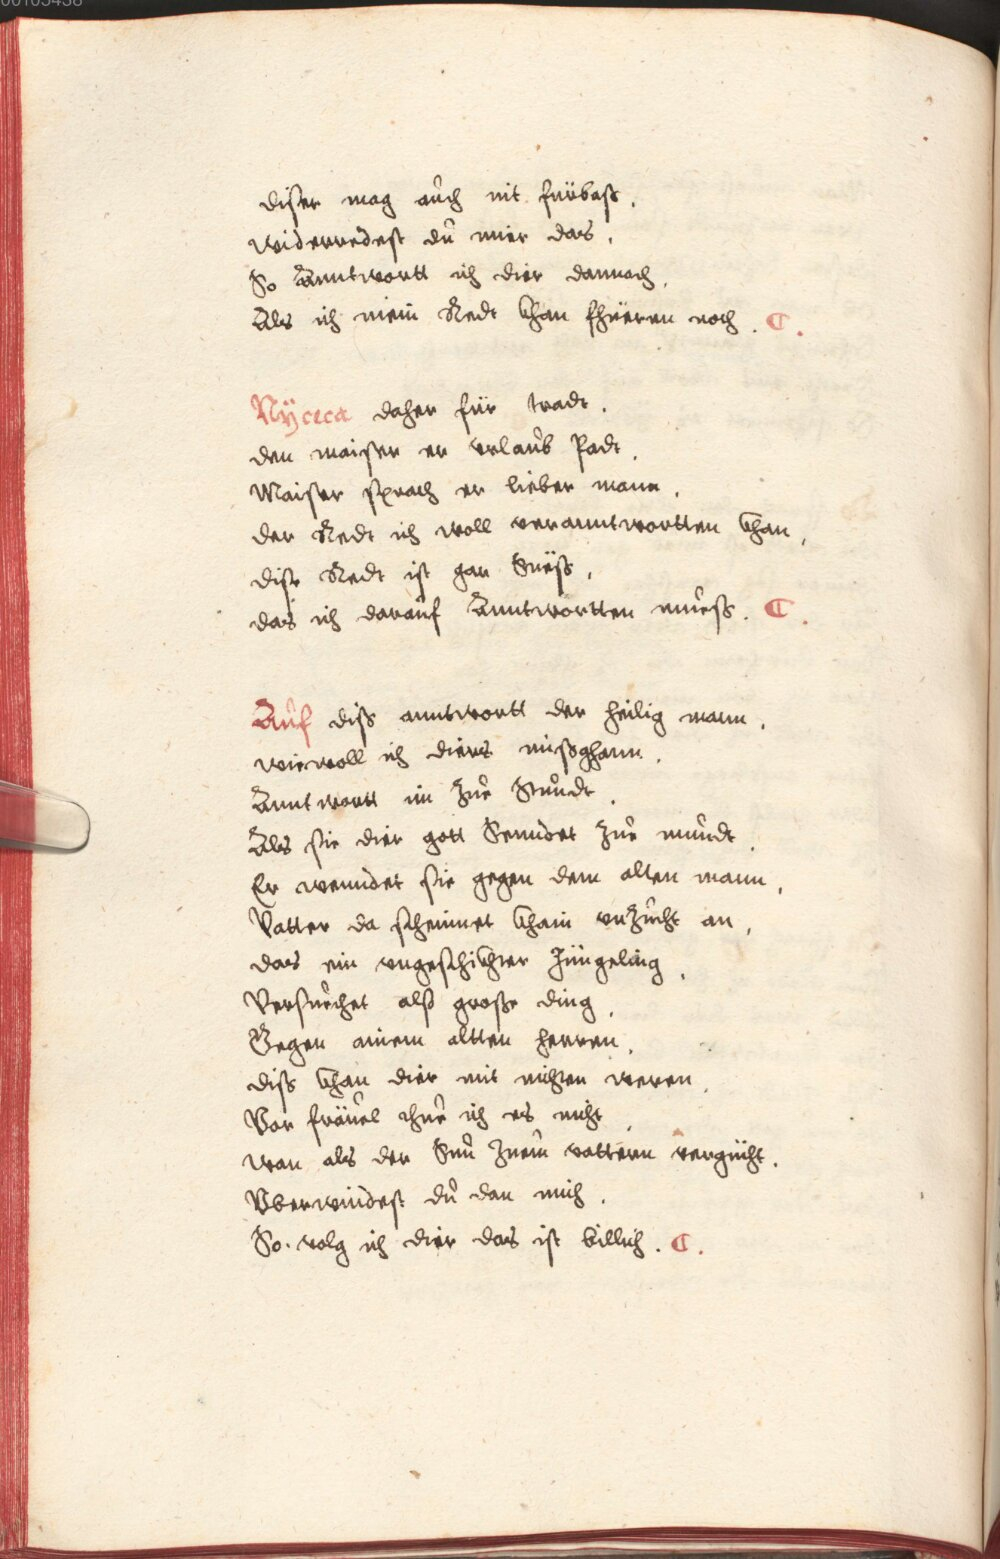 00105438
diser mag aůch nit fürbass.
widerredest dů mier das.
So Anntwortt ich dier dannoch.
Als ich mein Redt khan fhüeren noch. C.
Nÿceca daher für tradt.
den maiser er vrlaůb Padt.
Maiser sprach er lieber mann.
der Redt ich woll veranntwortten khan,
dise Redt ist gar Süëss.
das ich daraůf Anntwortten můess. C.
Aůf diss anntwortt der heilig mann.
wiewoll ich diers missghann.
Anntwortt im Zůe Stůndt.
Als sie dier gott Senndet Zůe můndt.
Er wenndet sie gegen dem alten mann.
Vatter da scheinnet khain vnZůcht an.
das ein vngeschickhter Jüngeling.
Versůechet also grosse ding.
Gegen ainem altten herren.
diss khan dier mit nichten weren.
Vor fräůel thůe ich es nicht.
wan als der Sůn Zůem vattern vergicht.
Vberwindest dů dan mich.
So volg ich dier das ist billich. C.